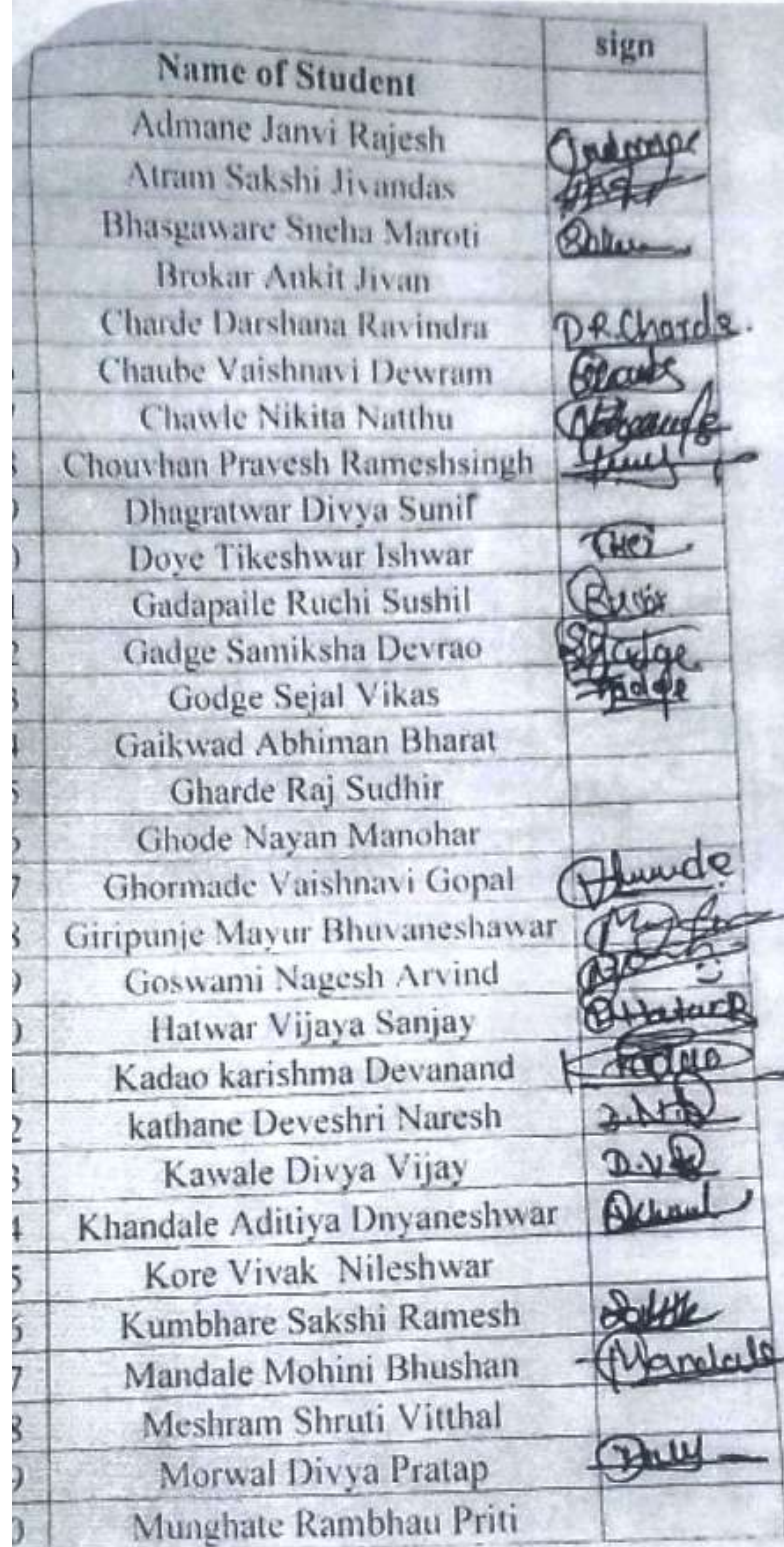 Name of Student sign
Admane Janvi Rajesh
Atram Sakshi Jivandas
Bhasgaware Sneha Maroti
Brokar Ankit Jivan
Charde Darshana Ravindra D.R.Charde.
Chaube Vaishnavi Dewram
Chawle Nikita Natthu
8 Chouvhan Pravesh Rameshsingh
9 Dhagratwar Divya Sunil
0 Doye Tikeshwar Ishwar
1 Gadapaile Ruchi Sushil
2 Gadge Samiksha Devrao
3 Godge Sejal Vikas
4 Gaikwad Abhiman Bharat
5 Gharde Raj Sudhir
6 Ghode Nayan Manohar
7 Ghormade Vaishnavi Gopal
8 Giripunje Mayur Bhuvaneshawar
9 Goswami Nagesh Arvind
0 Hatwar Vijaya Sanjay
1 Kadao karishma Devanand
2 kathane Deveshri Naresh
3 Kawale Divya Vijay
4 Khandale Aditiya Dnyaneshwar
5 Kore Vivak Nileshwar
6 Kumbhare Sakshi Ramesh
7 Mandale Mohini Bhushan Mandale
8 Meshram Shruti Vitthal
9 Morwal Divya Pratap
0 Munghate Rambhau Priti